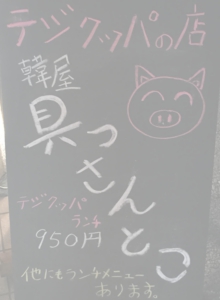 テジクッパの店
韓屋
具っさんとこ
テジクッパ
ランチ
950円
他にもランチメニュー
あります。